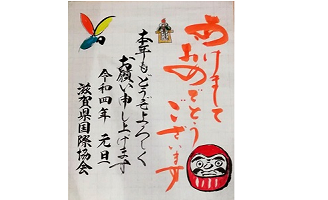 あけまして
おめでとう
ございます
本年もどうぞよろしく
お願い申し上げます
令和四年 元旦
滋賀県国際協会